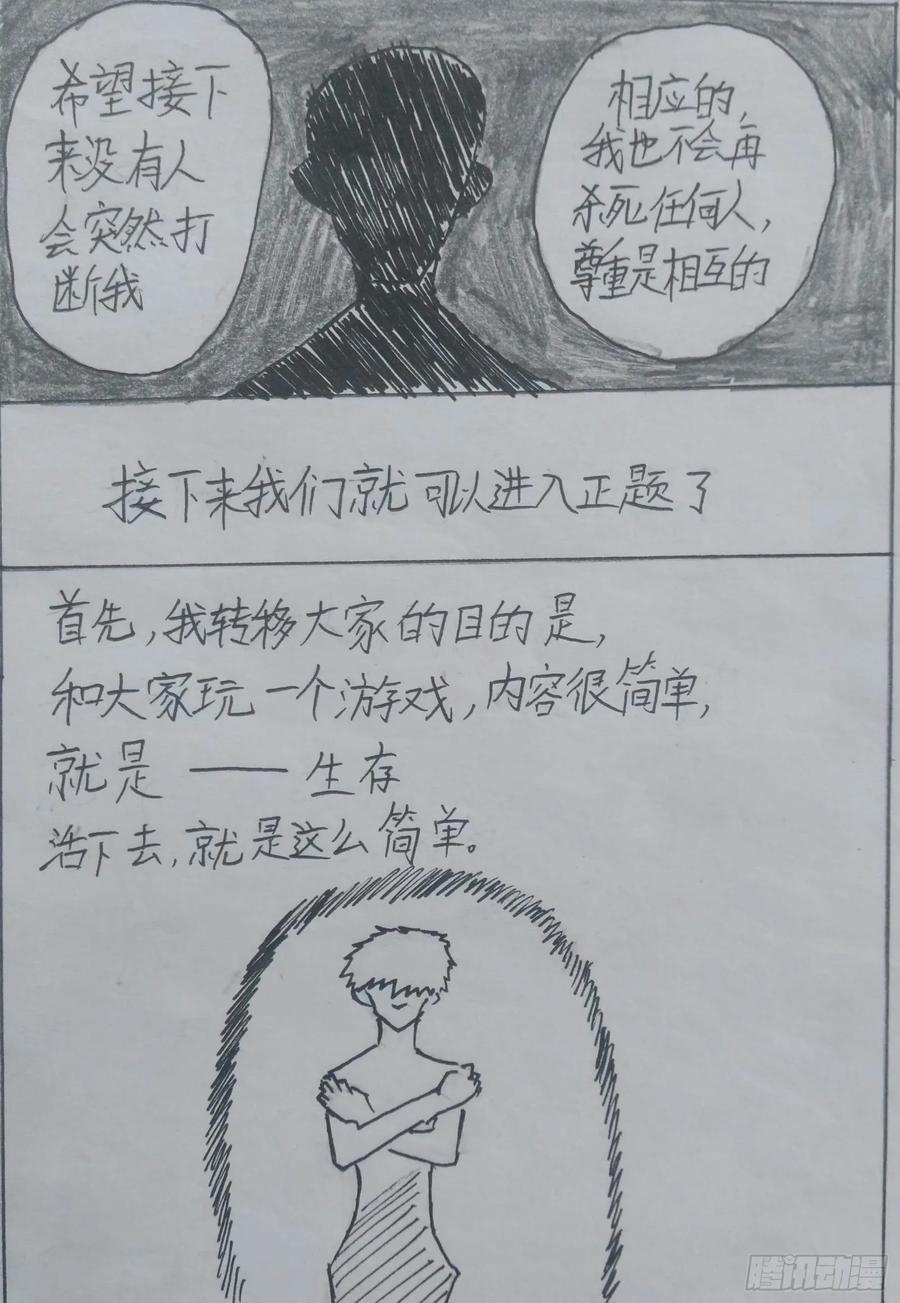 希望接下
来没有人
会突然打
断我
相应的,
我也不会再
杀死任何人,
尊重是相互的
接下来我们就可以进入正题了
首先,我转移大家的目的是,
和大家玩一个游戏,内容很简单,
就是——生存
活下去,就是这么简单。
腾讯动漫